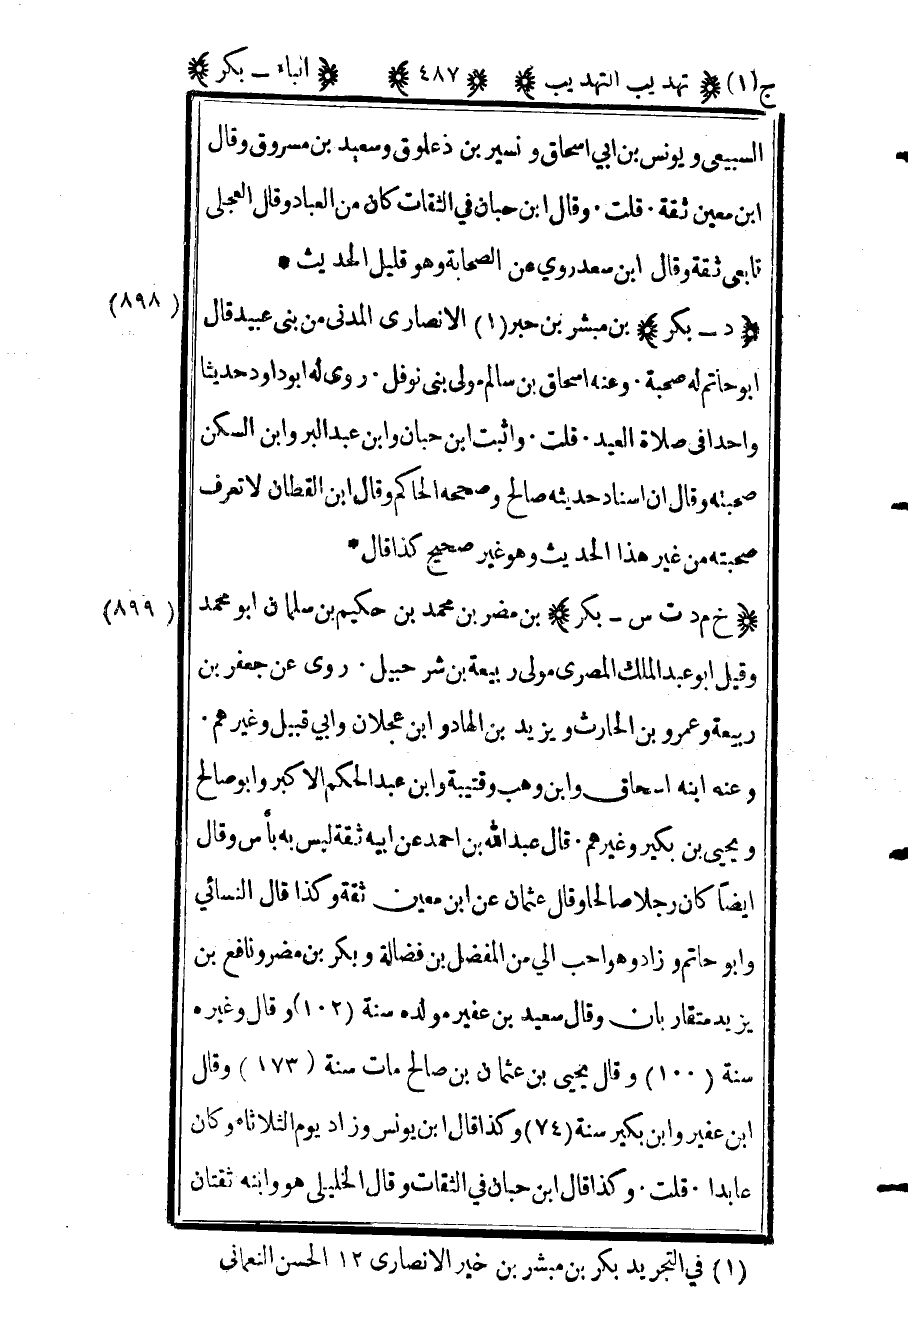 ج(١) ﴿ تهذيب التهذيب ﴾ ﴿ ٤٨٧ ﴾ ﴿ الباء ــ بكر ﴾
السبيعي ويونس بن ابي اسحاق ونسير بن ذعلوق وسعيد بن مسروق وقال
ابن معين ثقة · قلت · وقال ابن حبان في الثقات كان من العباد وقال العجلى
تابعى ثقة وقال ابن سعد روي عن الصحابة وهو قليل الحديث *
﴿ د ــ بكر ﴾ بن مبشر بن حبر(١) الانصارى المدنى من بنى عبيد قال (٨٩٨)
ابو حاتم له صحبة · وعنه اسحاق بن سالم مولى بنى نوفل · روى له ابو داود حديثا
واحدا فى صلاة العيد · قلت · واثبت ابن حبان وابن عبد البر وابن السكن
صحبته وقال ان اسناد حديثه صالح وصححه الحاكم وقال ابن القطان لا تعرف
صحبته من غير هذا الحديث وهو غير صحيح كذا قال *
﴿ خ م د ت س ــ بكر ﴾ بن مضر بن محمد بن حكيم بن سلمان ابو محمد (٨٩٩)
وقيل ابو عبد الملك المصرى مولى ربيعة بن شرحبيل · روى عن جعفر بن
ربيعة وعمرو بن الحارث ويزيد بن الهاد و ابن عجلان وابي قبيل وغيرهم ·
وعنه ابنه اسحاق وابن وهب وقتيبة وابن عبد الحكم الاكبر وابو صالح
ويحيى بن بكير وغيرهم · قال عبد الله بن احمد عن ابيه ثقة ليس به بأس وقال
ايضاً كان رجلا صالحا وقال عثمان عن ابن معين ثقة وكذا قال النسائي
وابو حاتم وزاد وهو احب الي من المفضل بن فضالة و بكر بن مضر ونافع بن
يزيد متقاربان وقال سعيد بن عفير مولده سنة (١٠٢) وقال وغيره
سنة (١٠٠) وقال يحيى بن عثمان بن صالح مات سنة (١٧٣) وقال
ابن عفير وابن بكير سنة (٧٤) وكذا قال ابن يونس وزاد يوم الثلاثاء وكان
عابدا · قلت · وكذا قال ابن حبان في الثقات وقال الخليلى هو وابنه ثقتان
(١) في التجريد بكر بن مبشر بن خير الانصارى ١٢ الحسن النعمانى